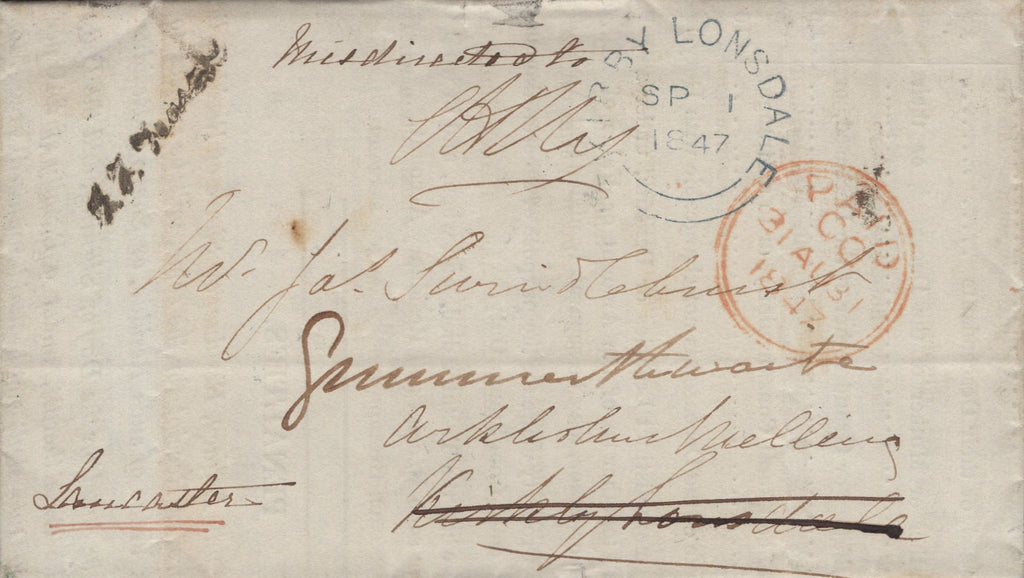 Misdirected to
KIRKBY LONSDALE
SP 1
1847
PAID
31 AU 31
1847
Mr. Jas. Swindlehurst
Gunnerthwaite
Arkholme Melling
Kirkby Lonsdale
Lancaster